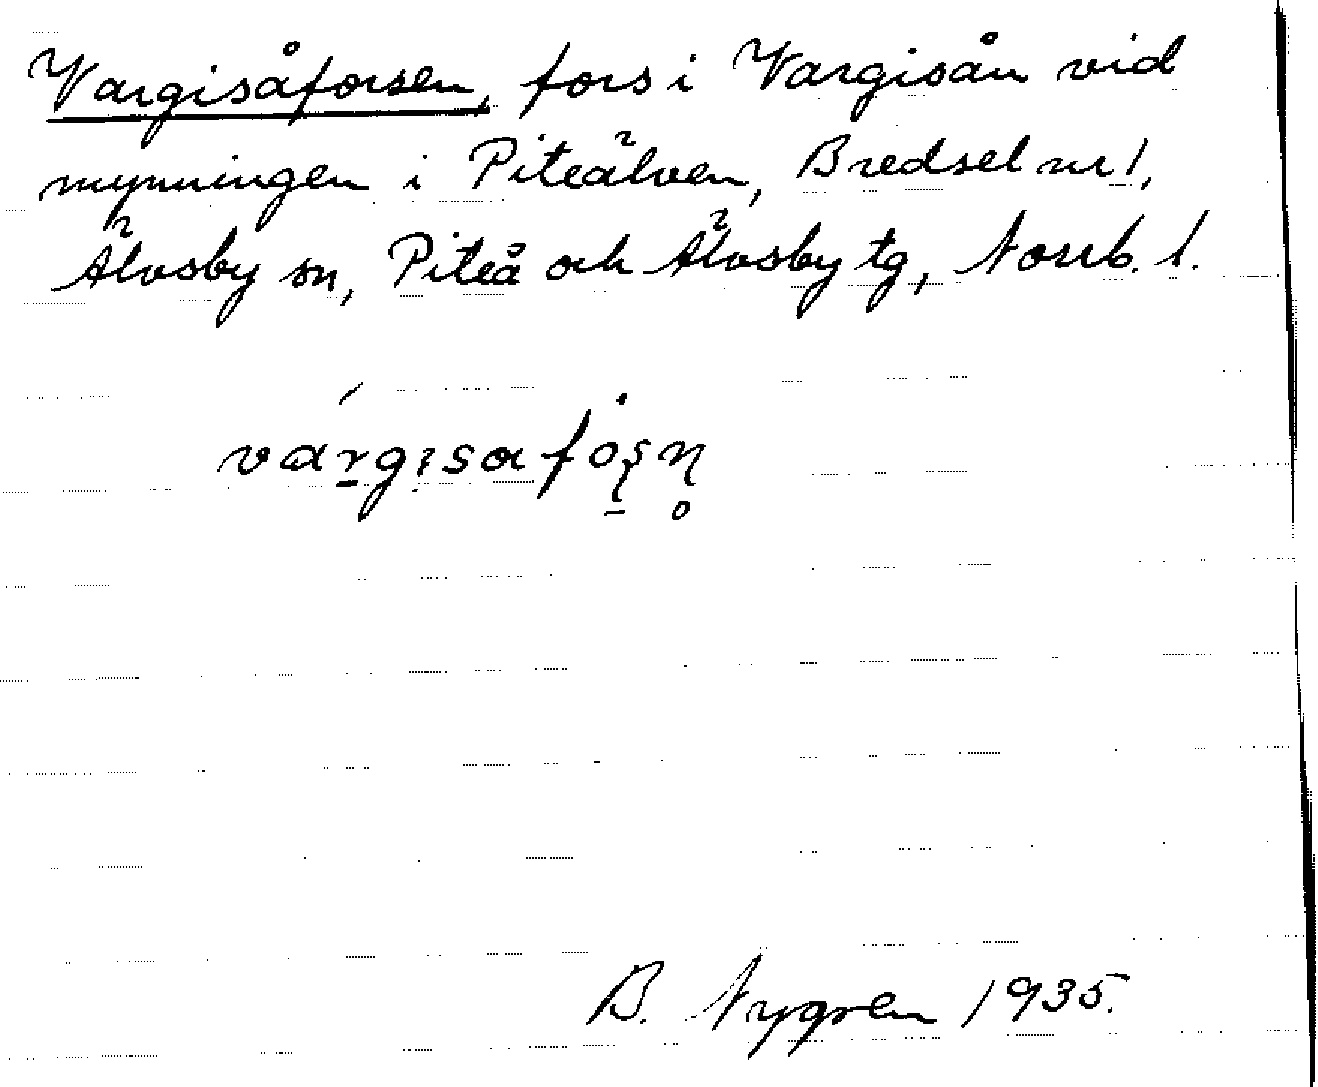 Vargisåforsen, fors i Vargisån vid
mynningen i Piteälven, Bredsel nr 1,
Älvsby sn, Piteå och Älvsby tg, Norrb. l.
várgisafȯṣn̥
B. Nygren 1935.